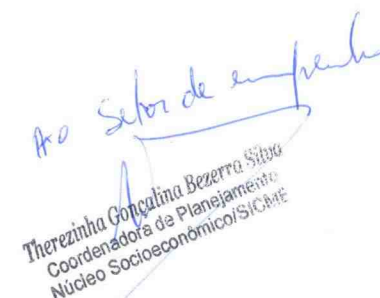 Ao Setor de empenho
Therezinha Gonçalina Bezerra Silva
Coordenadora de Planejamento
Núcleo Socioeconômico/SICME